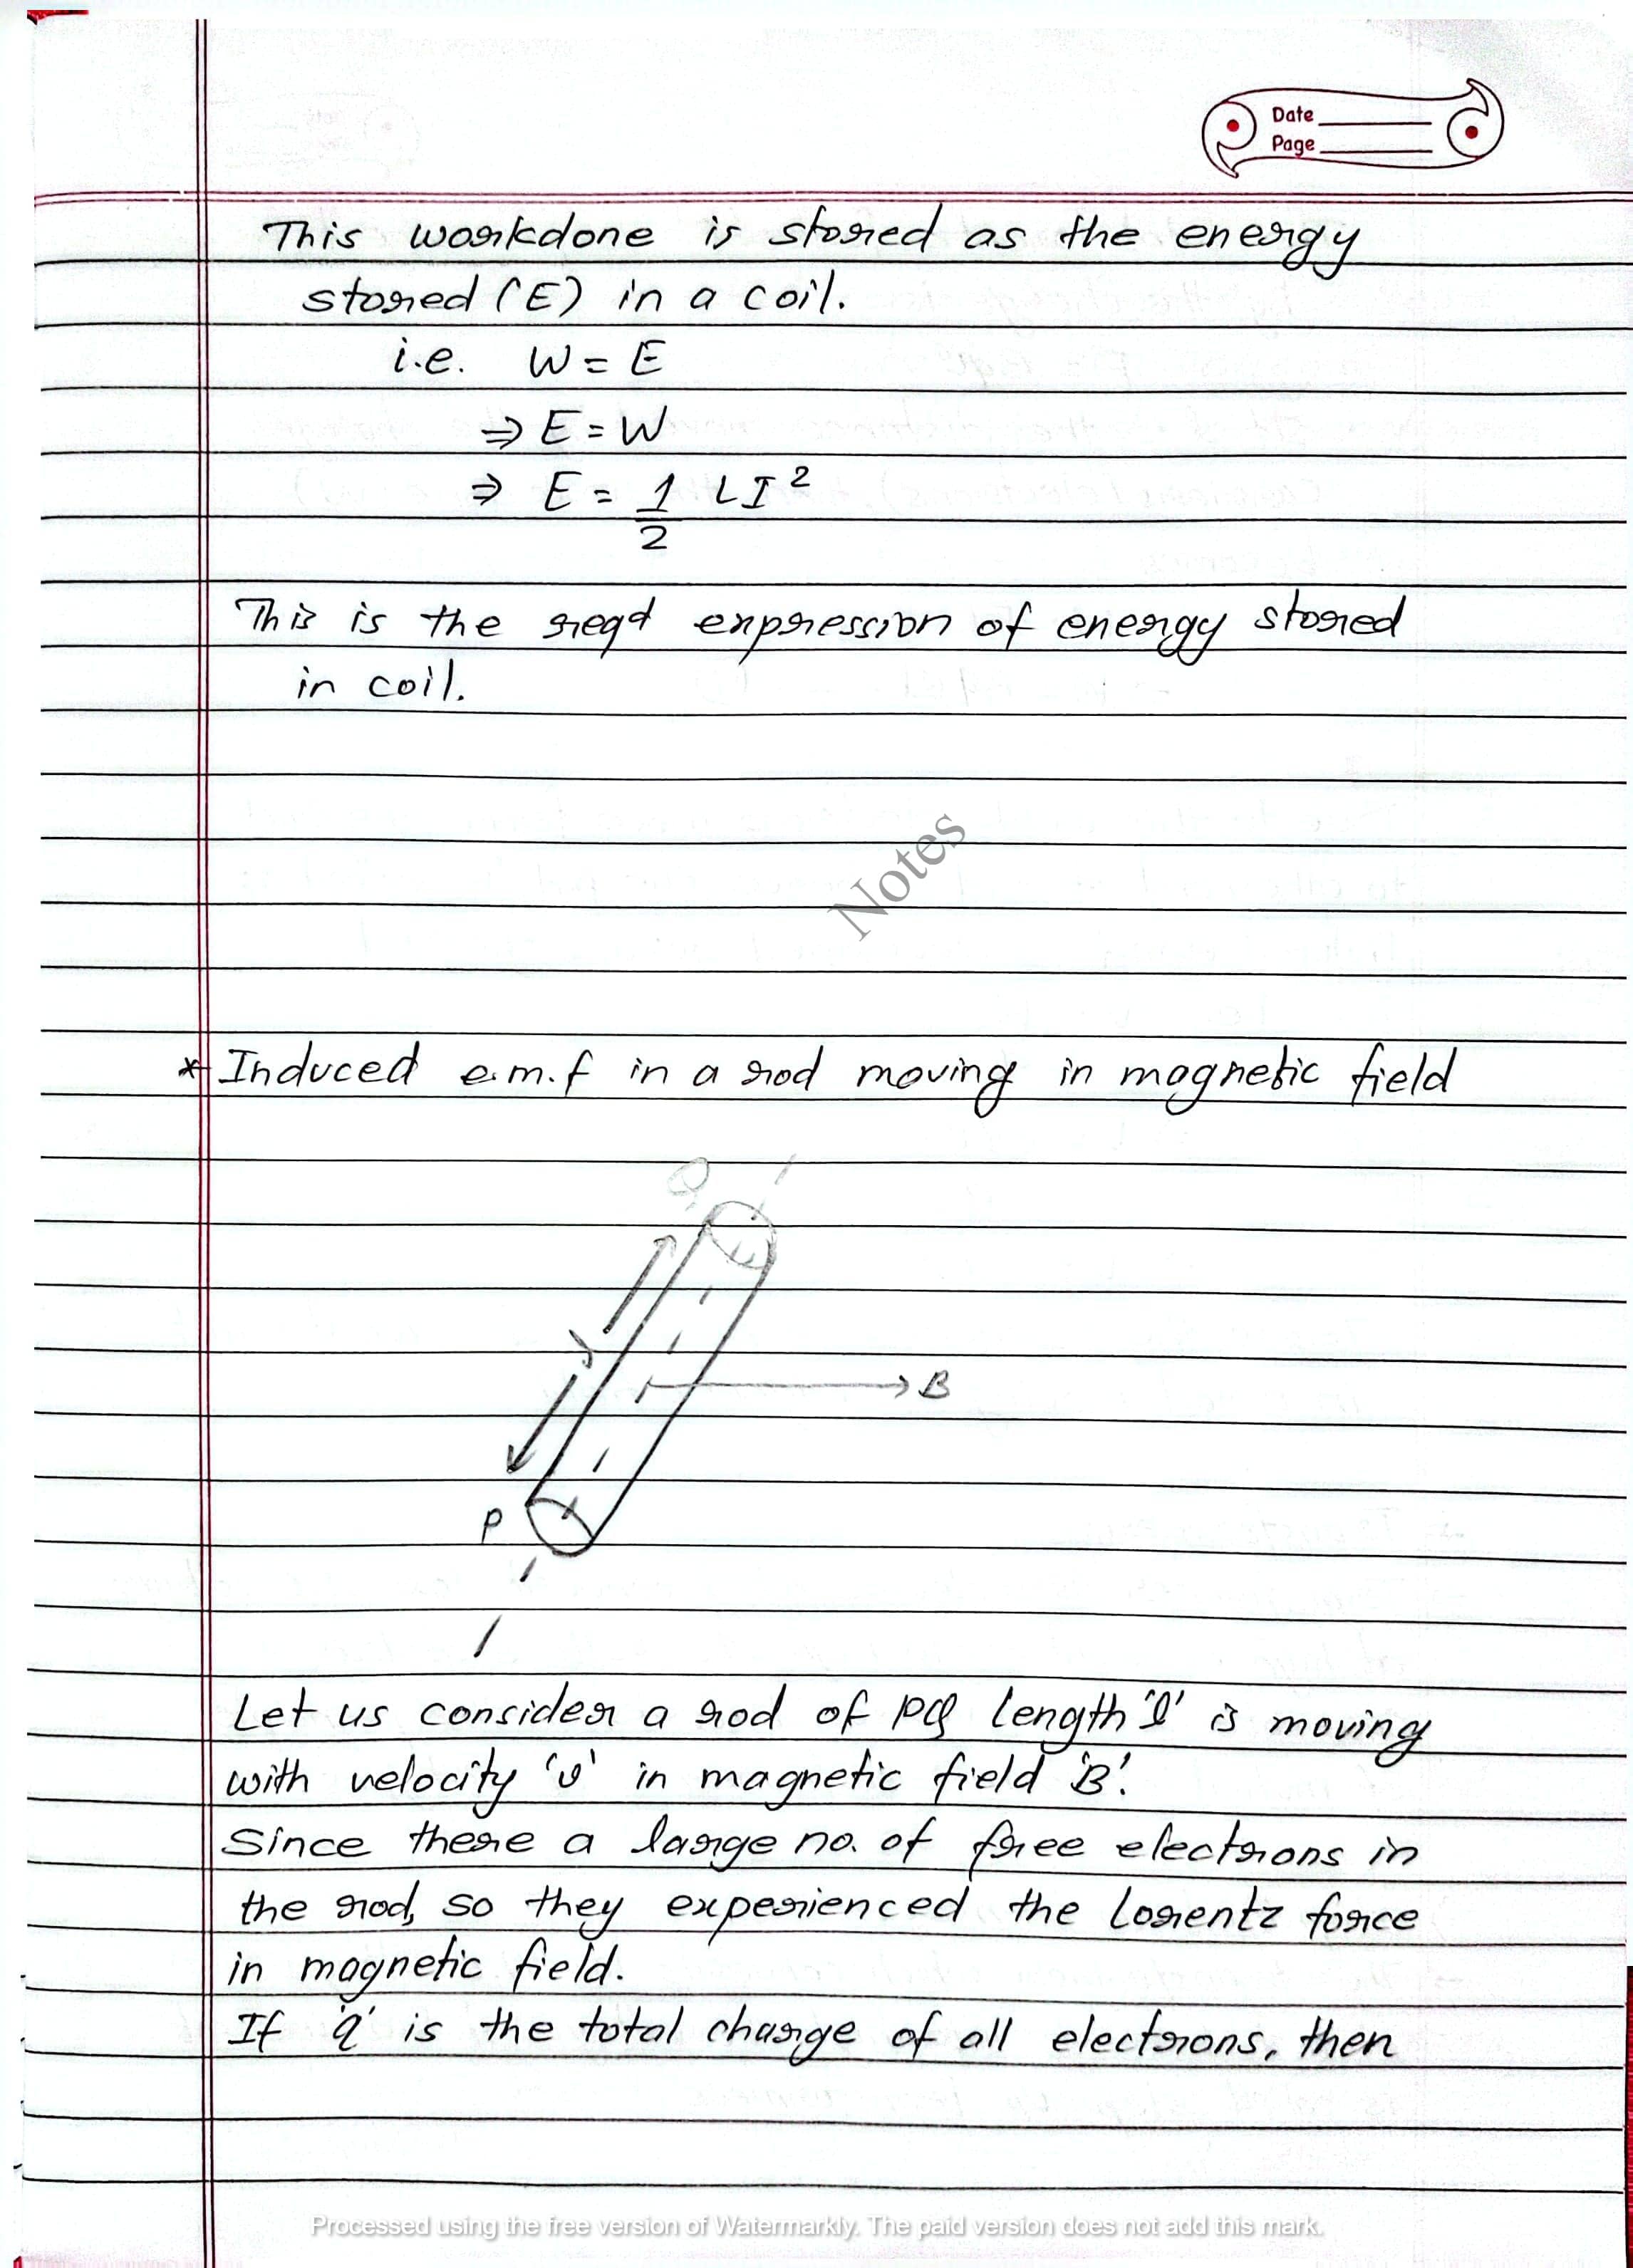 Date
Page
This workdone is stored as the energy
stored (E) in a coil.
i.e. W = E
⇒ E = W
⇒ E = 1/2 LI²
This is the reqd expression of energy stored
in coil.
Notes
* Induced e.m.f in a rod moving in magnetic field
Q
B
P
Let us consider a rod of PQ length 'l' is moving
with velocity 'v' in magnetic field 'B'.
Since there a large no. of free electrons in
the rod, so they experienced the Lorentz force
in magnetic field.
If 'q' is the total charge of all electrons, then
Processed using the free version of Watermarkly. The paid version does not add this mark.